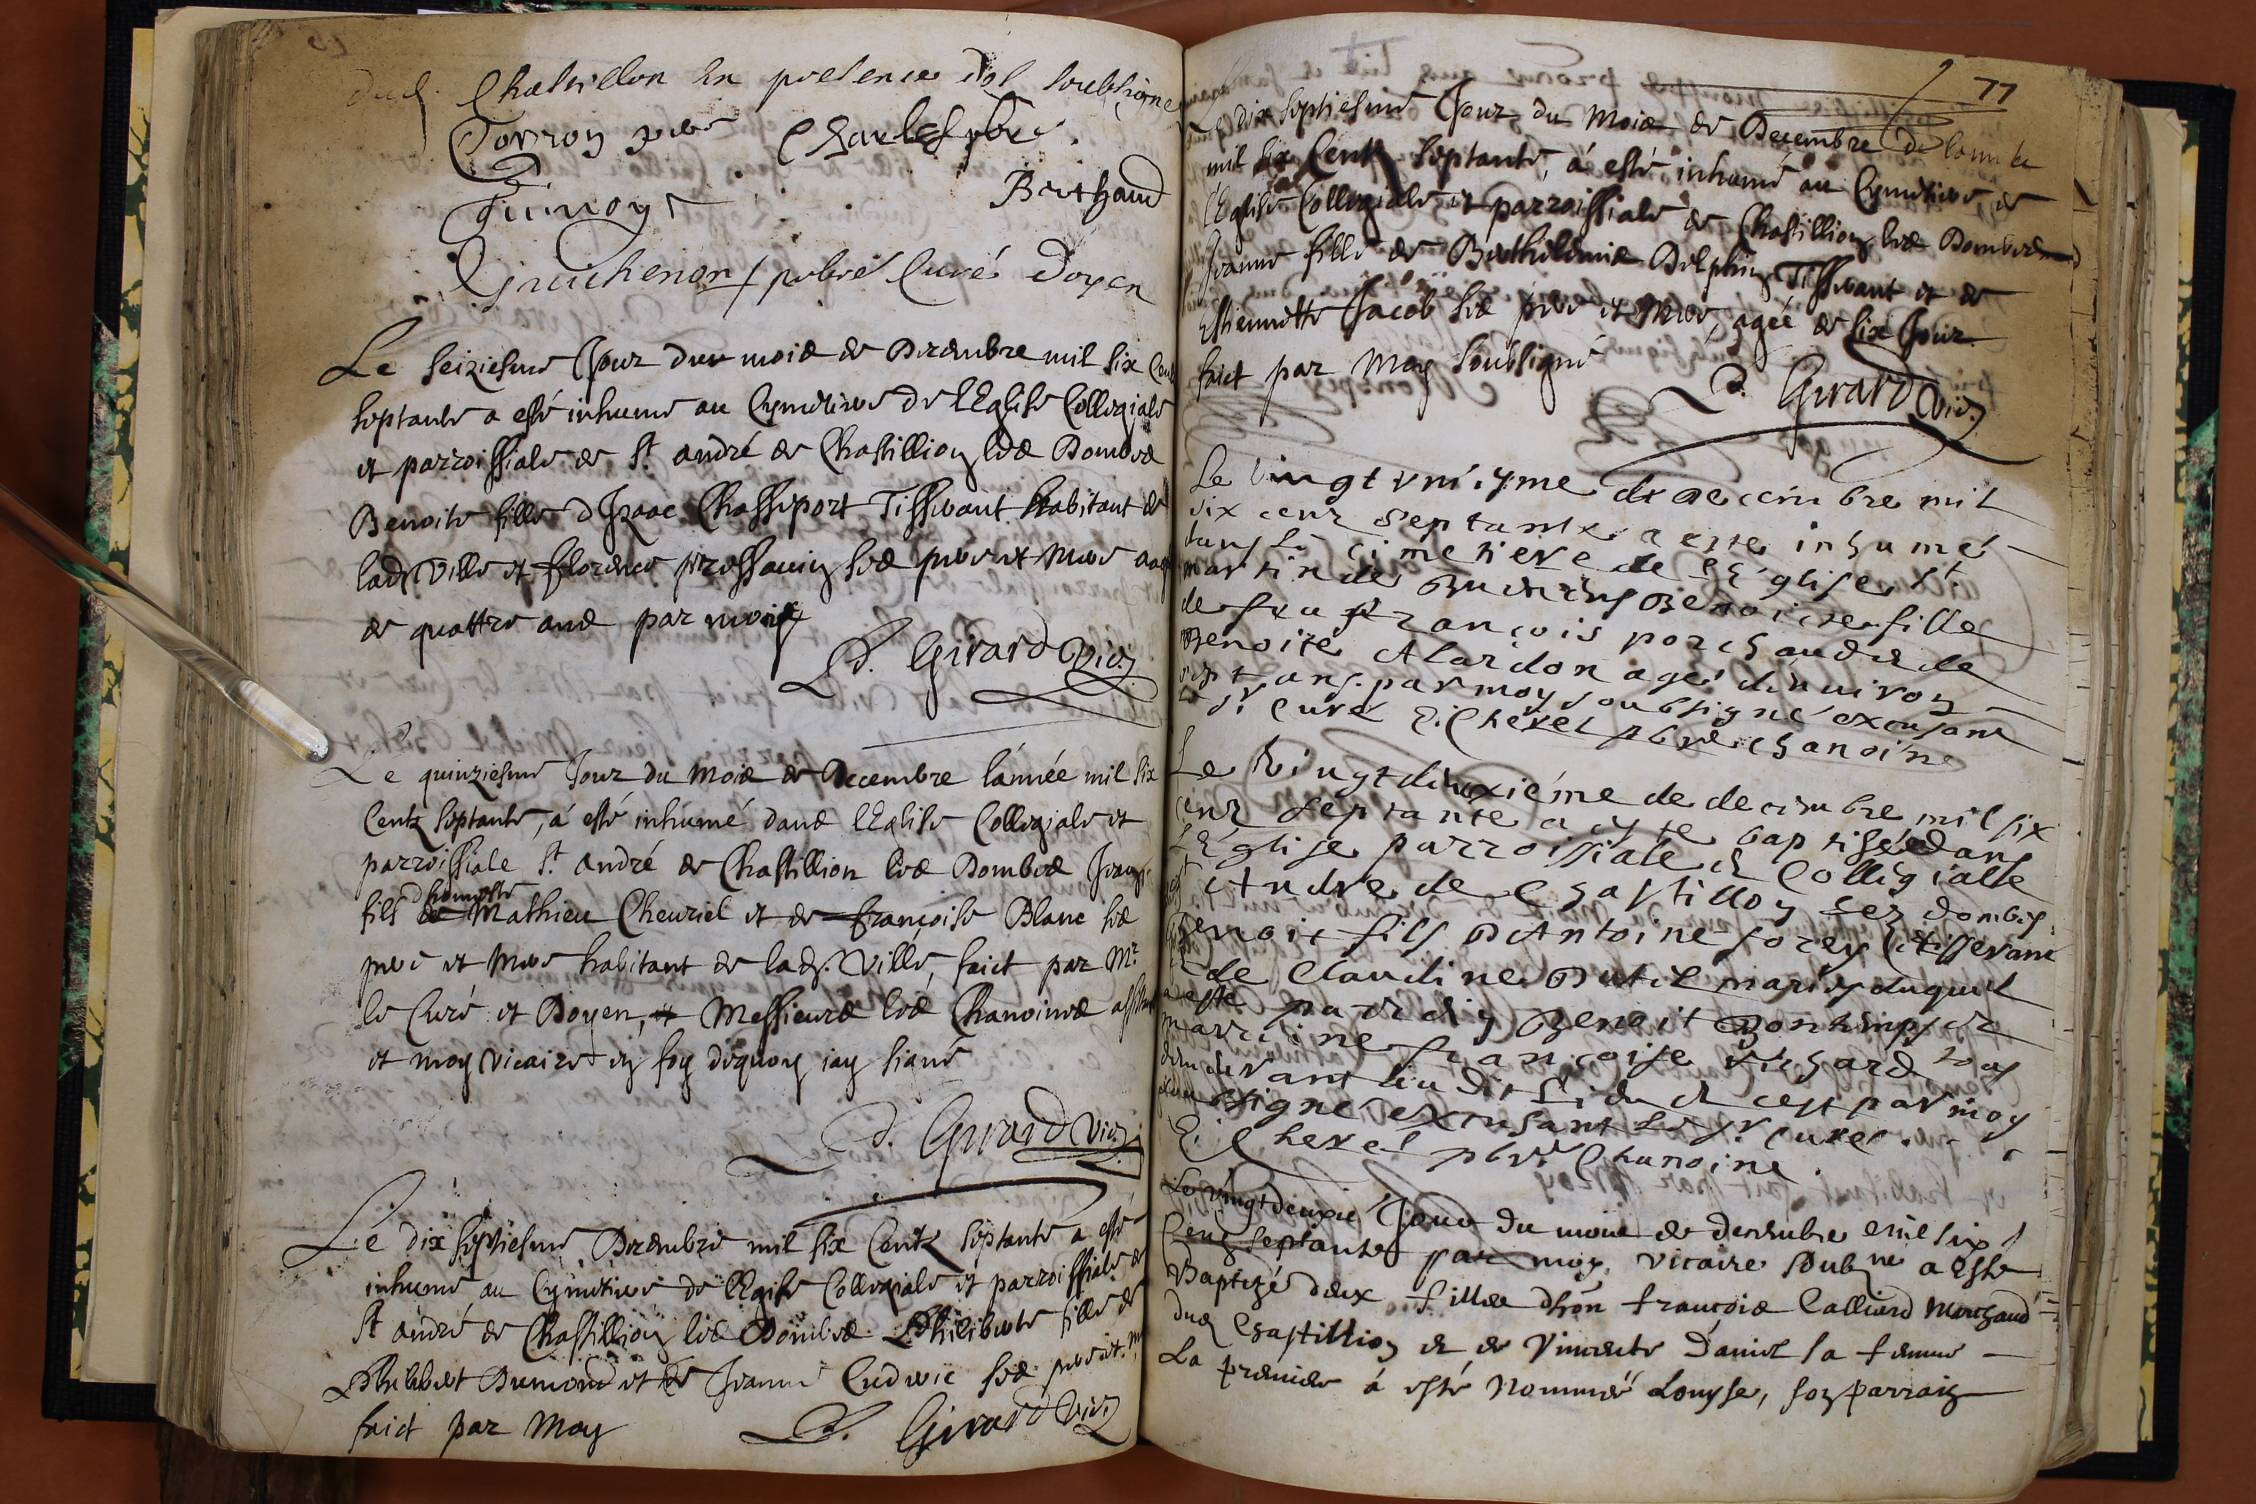 dud. Chastillon En presence des soubsigne
Torron pbre Charles pbre
Berthaud
Guichenon pbré Curé Doyen
Le seiziesme Jour du mois de Decembre mil six Cent
septante a esté inhume au Cymetiere de lEglise Collegiale
et parroissiale de St. andré de Chastillion les Dombes
Benoite fille dIzaac Chasseport Tisserant habitant de
lad. Ville et florence pressavin ses pere et mere aagé
de quattre ans par moy
P. Girard Vic.
Le quinziesme Jour du Mois de Decembre l'année mil six
Centz septante, á esté inhumé dans lEglise Collegiale et
parroissiale St. andré de Chastillion les Dombes
fils dhonneste Mathieu Cheuriel et de francoise Blanc ses
pere et Mere habitant de lad. Ville, faict par Mr.
le Curé et Doyen, Messieurs les Chanoines
et moy Vicaire en foy dequoy iay signé
P. Girard Vic.
Le dix septiesme Decembre mil six Centz septante a esté
inhume au Cymetiere de lEglise Collegiale et parroissiale de
St andré de Chastillion les Dombes Philiberte fille de
Philibert Dumond et de Jeanne Ludovic ses pere et
faict par Moy P. Girard Vic.
77
Le dix septiesme Jour du Mois de Decembre de lannée
mil six Centz septante, á esté inhumé au Cymetiere de
lEglise Collegiale et parroissiale de Chastillion les Dombes
Jeanne fille de Barthelemie Delphin Tisserant et de
Estiennette Jacob ses pere et Mere, agée de six Jour
faict par Moy soubsigné
P. Girard Vic.
Le vingt vniyme de decembre mil
six cenz septante a este inhumé
dans le cimetiere de lEglise St.
martin de Buenens Benoite fille
de feu francois porchaud et de
Benoite Alardon agée denuiron
sept ans par moy soubsigné excusant
Sr Curé pbre chanoine
Le vingt deuxiéme de decembre mil six
cenz septante a este baptisé dans
lEglise parroissiale et Collegialle
St Andre de Chastillon les dombes
Benoit fils d'Antoine sorey tisserant
et de Claudine Dutil mariés duquel
a esté parrein Benoit et
marrine francoise Richard tous
demeurant au dit lieu et cest par moy
soubsigné excusant le sr Curé.
pbre Chanoine.
Le vingt deuxie Jour du mois de decembre mil six
Cenz septante par moy vicaire soubne a Este
Baptizé deux filles dhon francois Calliard Marchand
dud Chastillion et de Vincente Daniel sa femme
La premiere á esté Nommeé Louyse, son parrain